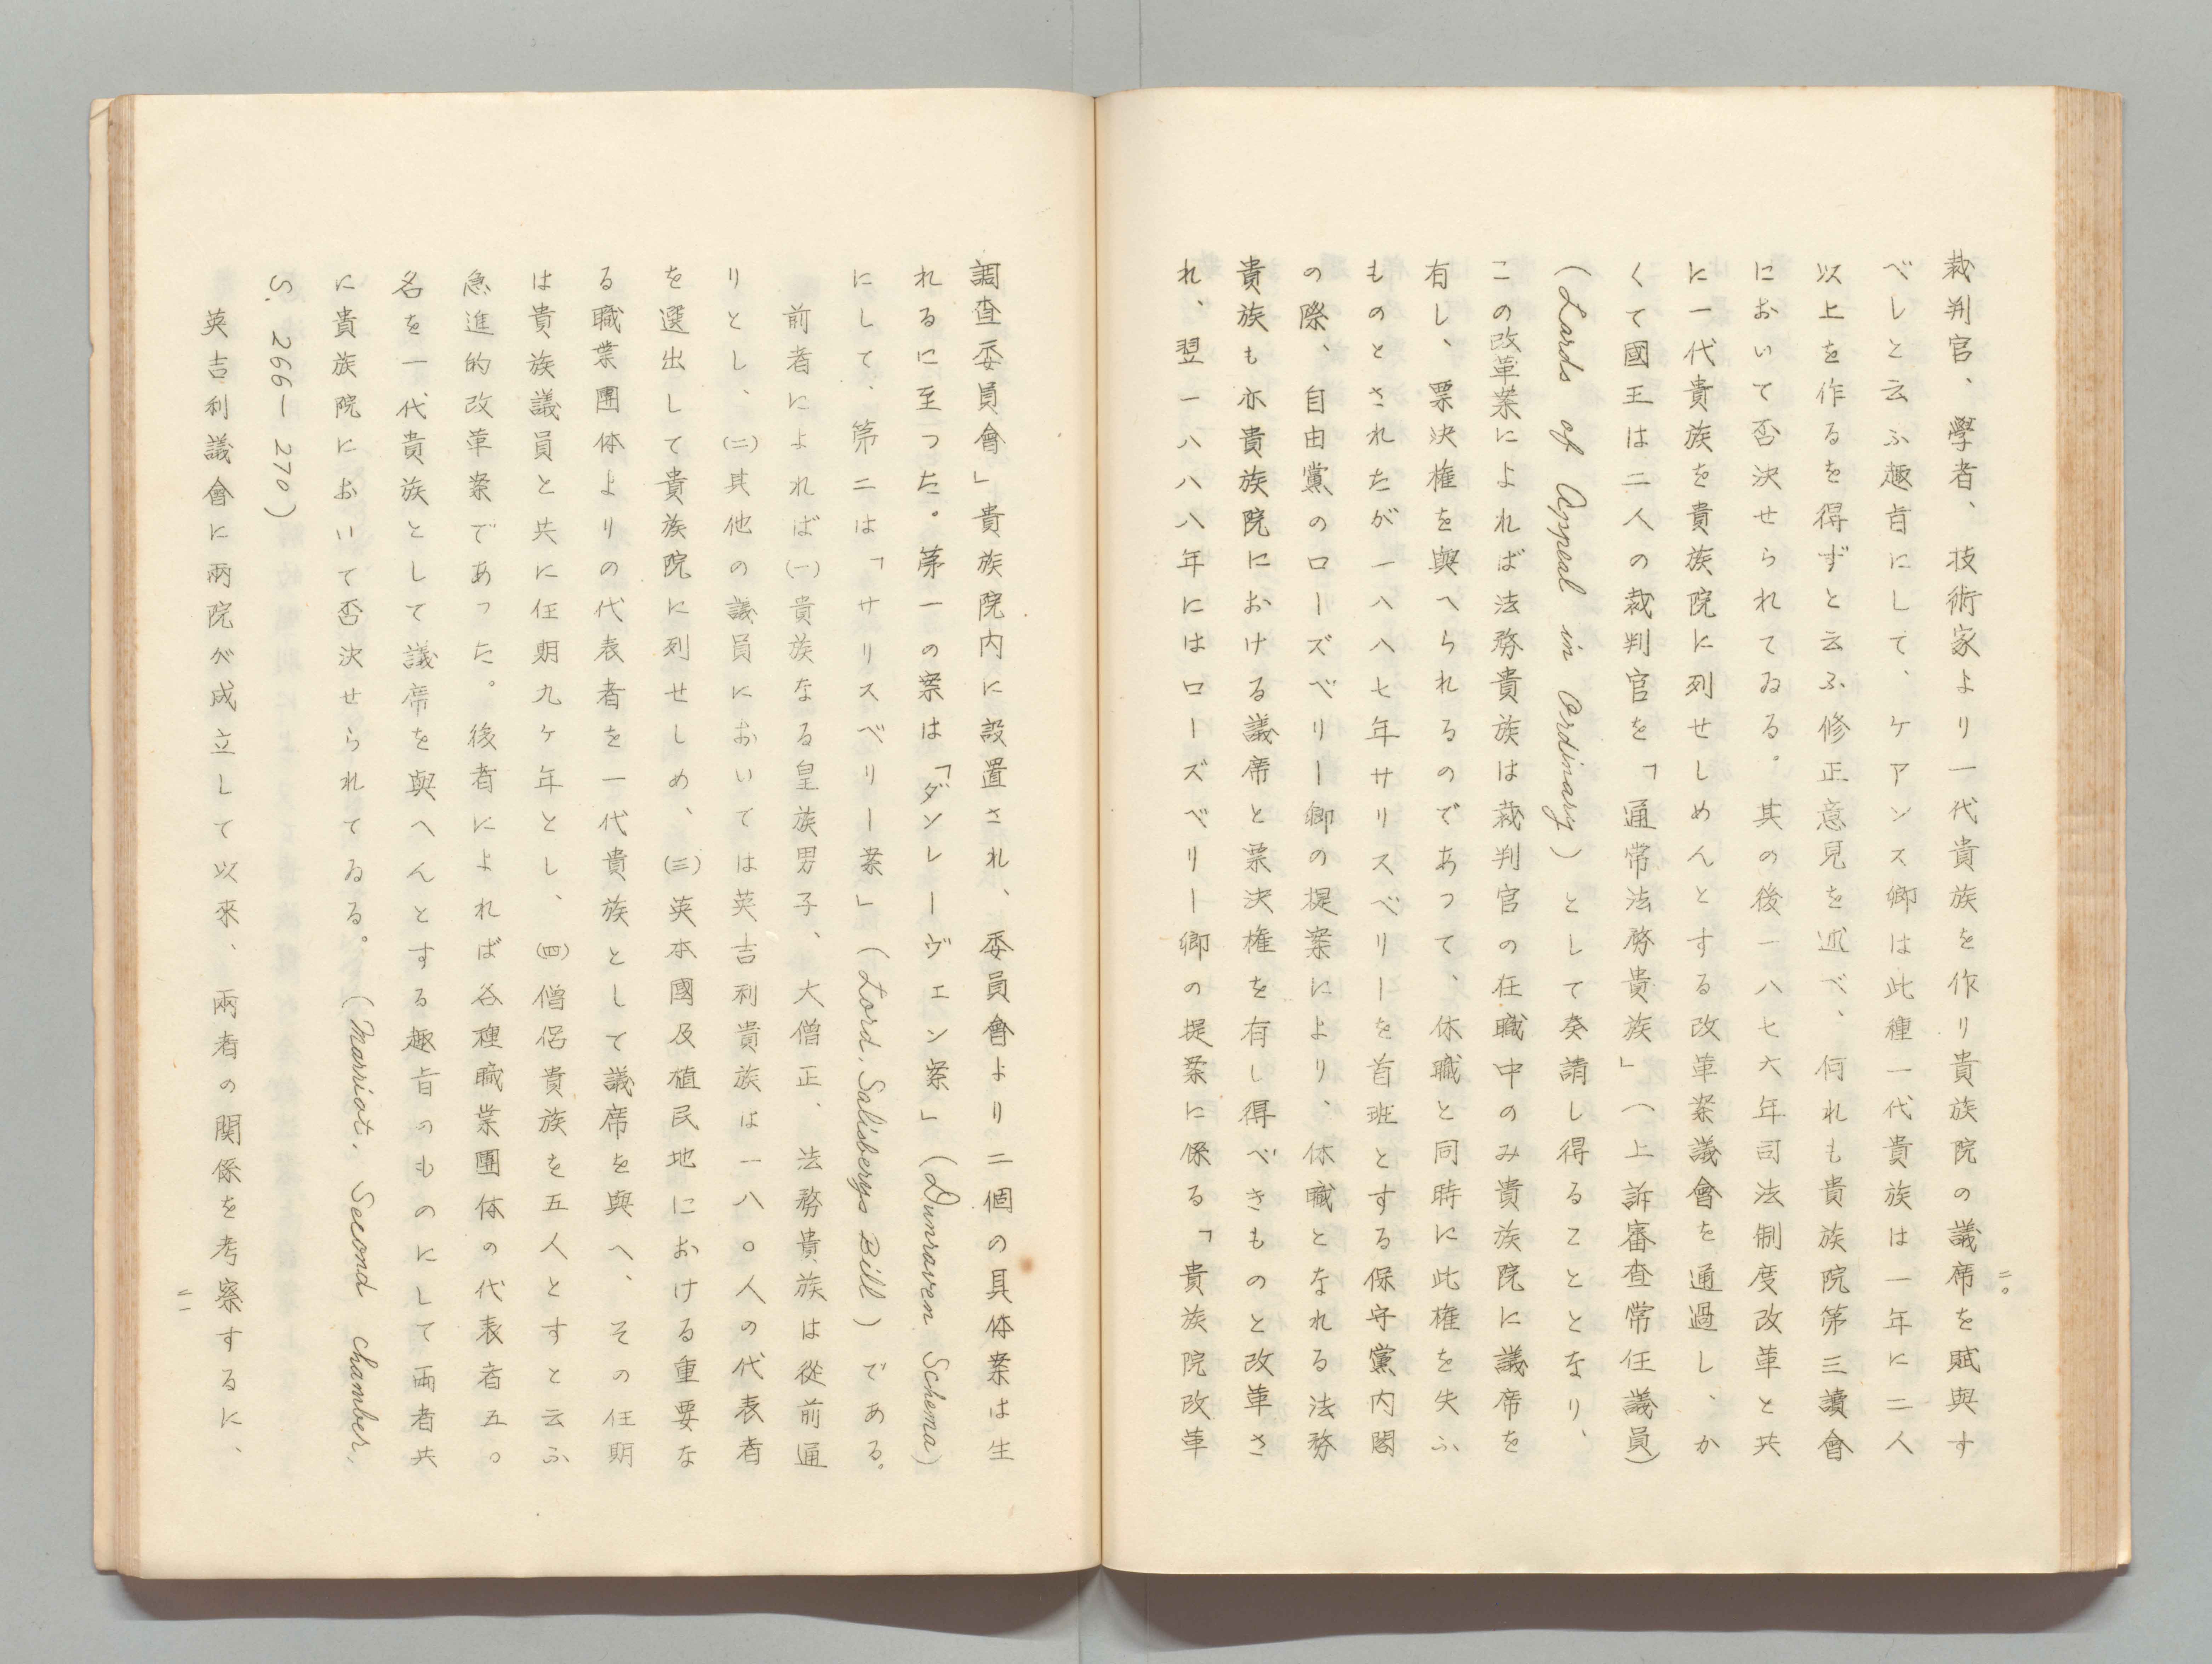 二〇
裁判官、學者、技術家より一代貴族を作り貴族院の議席を賦與す
べしと云ふ趣旨にして、ケアンス卿は此種一代貴族は一年に二人
以上を作るを得ずと云ふ修正意見を述べ、何れも貴族院第三讀會
において否決せられてゐる。其の後一八七六年司法制度改革と共
に一代貴族を貴族院に列せしめんとする改革案議會を通過し、か
くて國王は二人の裁判官を「通常法務貴族」（上訴審査常任議員）
(Lards of Appeal in Ordinary）として奏請し得ることとなり、
この改革案によれば法務貴族は裁判官の在職中のみ貴族院に議席を
有し、票決権を與へられるのであつて、休職と同時に此権を失ふ
ものとされたが一八八七年サリスベリーを首班とする保守黨内閣
の際、自由黨のローズベリー卿の提案により、休職となれる法務
貴族も亦貴族院における議席と票決権を有し得べきものと改革さ
れ、翌一八八八年にはローズベリー卿の提案に係る「貴族院改革
調査委員會」貴族院内に設置され、委員會より二個の具体案は生
れるに至つた。第一の案は「ダンレーヴェン案」（Dunraven Schema）
にして、第二は「サリスベリー案」（Lord. Salisberys Bill）である。
前者によれば㈠貴族なる皇族男子、大僧正、法務貴族は從前通
りとし、㈡其他の議員においては英吉利貴族は一八〇人の代表者
を選出して貴族院に列せしめ、㈢英本國及植民地における重要な
る職業團体よりの代表者を一代貴族として議席を與へ、その任期
は貴族議員と共に任期九ヶ年とし、㈣僧侶貴族を五人とすと云ふ
急進的改革案であつた。後者によれば各種職業團体の代表者五〇
名を一代貴族として議席を與へんとする趣旨のものにして両者共
に貴族院において否決せられてゐる。（Marriot. Second chamber,
S. 266—270）
英吉利議會に兩院が成立して以來、兩者の関係を考察するに、
二一